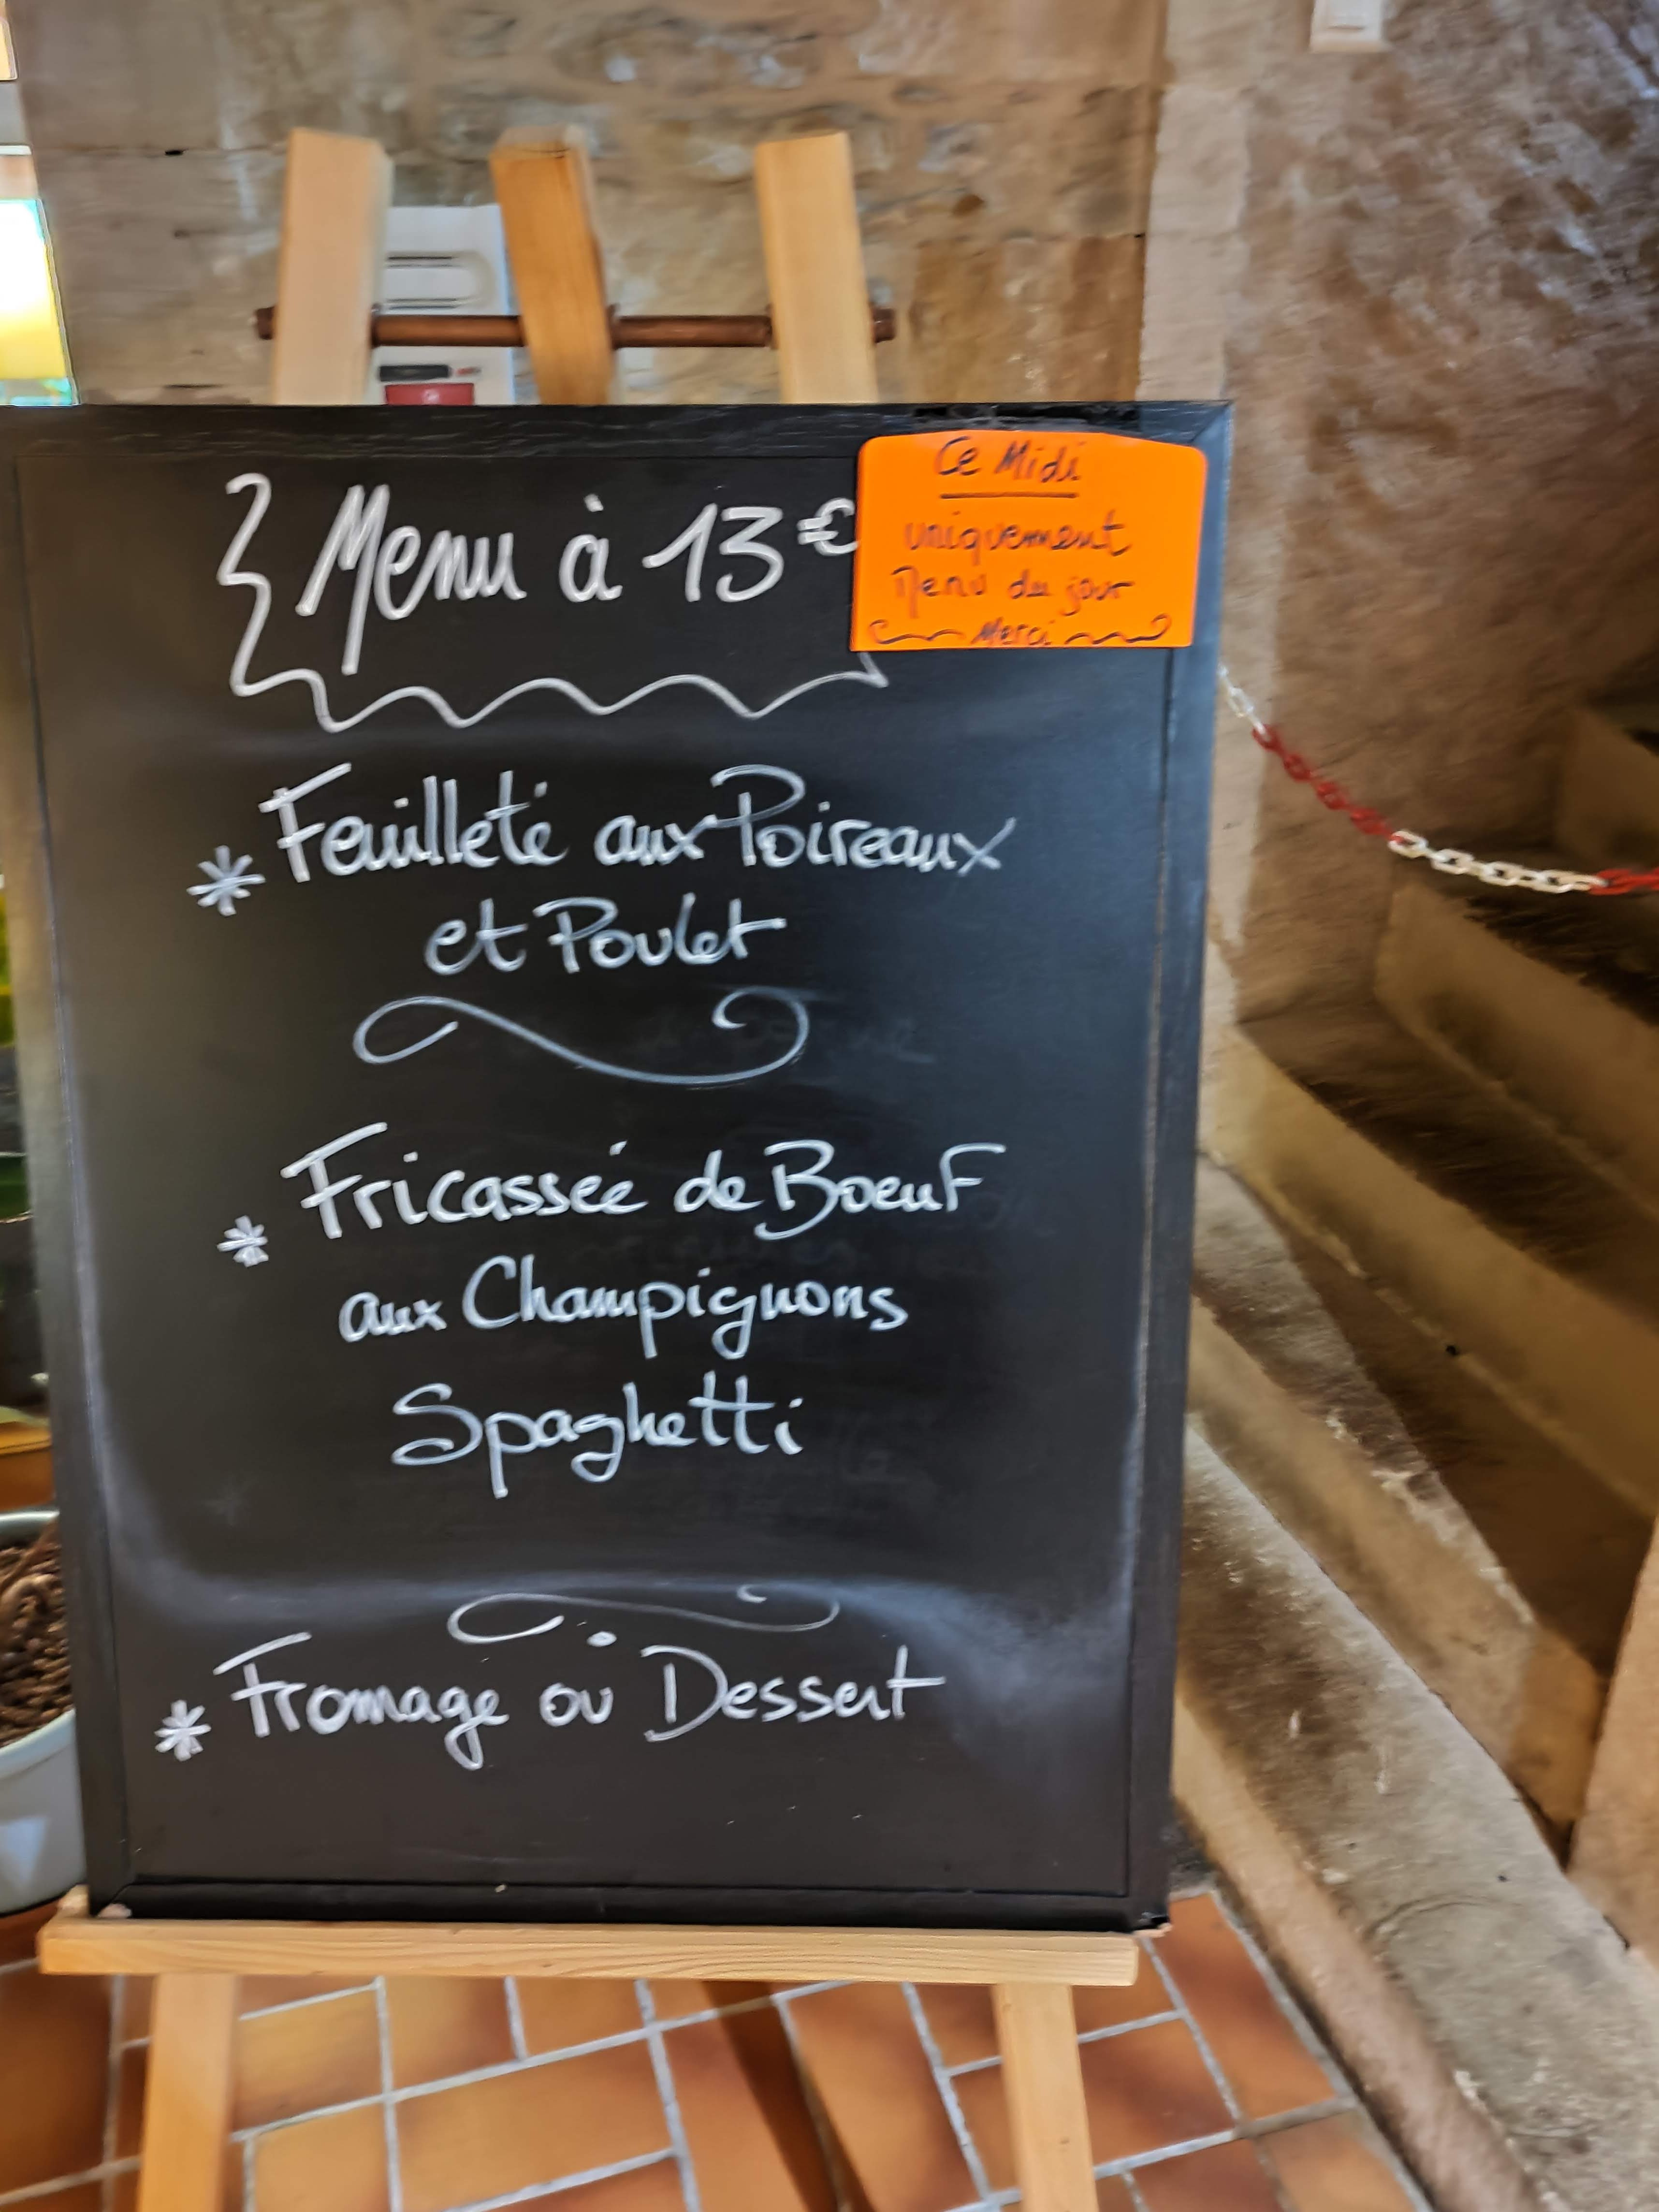 Menu à 13€
Ce Midi
uniquement
Menu du jour
Merci
* Feuilleté aux Poireaux
et Poulet
* Fricassée de Boeuf
aux Champignons
Spaghetti
* Fromage ou Dessert